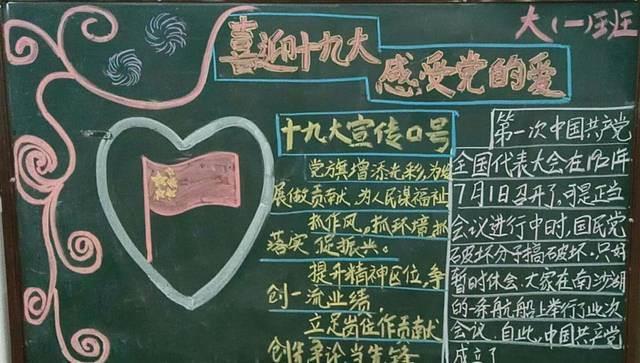 大(一)班
喜迎十九大
感受党的爱
十九大宣传口号
党旗增添光彩,为
展做贡献,为人民谋福祉
抓作风,抓环境抓
落实 促振兴。
提升精神区位,争
创一流业绩,
立足岗位作贡献
创先争论当先锋
第一次中国共产党
全国代表大会在1921年
7月1日召开了,可是正当
会议进行中时,国民党
破坏分子搞破坏,只好
暂时休会,大家在南沙湖
的一条航船上举行了此次
会议,自此,中国共产党
成立了